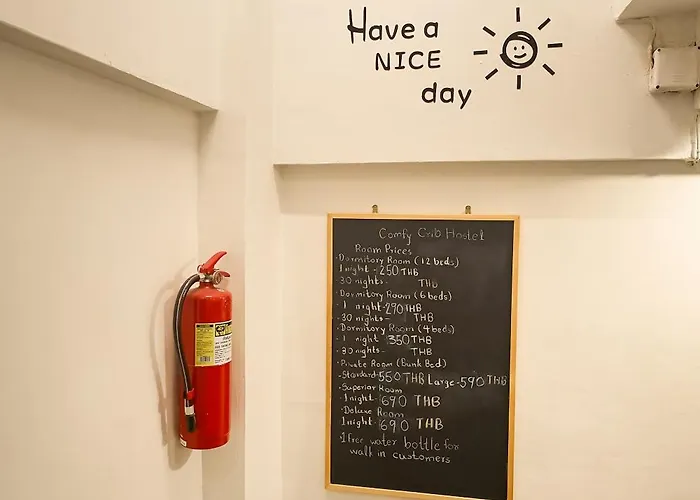 Have a
NICE
day
Comfy Crib Hostel
Room Prices
·Dormitory Room (12 beds)
1 night - 250 THB
30 nights - THB
·Dormitory Room (6 beds)
·1 night - 290 THB
·30 nights - THB
·Dormitory Room (4 beds)
·1 night 350 THB
·30 nights - THB
·Private Room (Bunk Bed)
·Standard - 550 THB Large - 590 THB
·Superior Room
·1 night - 690 THB
·Deluxe Room
1 night - 690 THB
·1 free water bottle for
walk in customers